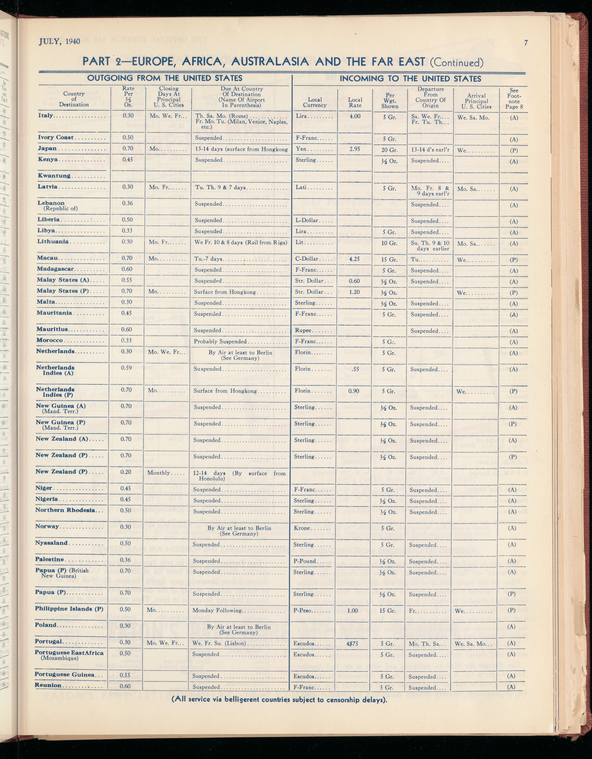 JULY, 1940 7
PART 2—EUROPE, AFRICA, AUSTRALASIA AND THE FAR EAST (Continued)
OUTGOING FROM THE UNITED STATES INCOMING TO THE UNITED STATES
Country of Destination | Rate Per ½ Oz. | Closing Days At Principal U. S. Cities | Due At Country Of Destination (Name Of Airport In Parenthesis) | Local Currency | Local Rate | Per Wgt. Shown | Departure From Country Of Origin | Arrival Principal U. S. Cities | See Footnote Page 8
Italy 0.30 Mo. We. Fr. Th. Sa. Mo. (Rome) Lira 4.00 5 Gr. Su. We. Fr. We. Sa. Mo. (A)
Fr. Mo. Tu. (Milan, Venice, Naples, Fr. Tu. Th.
etc.)
Ivory Coast 0.50 Suspended F-Franc 5 Gr. (A)
Japan 0.70 Mo. 13-14 days (surface from Hongkong Yen 2.95 20 Gr. 13-14 d's earl'r We. (P)
Kenya 0.45 Suspended Sterling ½ Oz. Suspended (A)
Kwantung
Latvia 0.30 Mo. Fr. Tu. Th. 9 & 7 days Lati 5 Gr. Mo. Fr. 8 & Mo. Sa. (A)
9 days earl'r
Lebanon 0.36 Suspended Suspended (A)
(Republic of)
Liberia 0.50 Suspended L-Dollar Suspended (A)
Libya 0.35 Suspended Lira 5 Gr. Suspended (A)
Lithuania 0.30 Mo. Fr. We Fr. 10 & 8 days (Rail from Riga) Lit 10 Gr. Su. Th. 9 & 10 Mo. Sa. (A)
days earlier
Macau 0.70 Mo. Tu.-7 days C-Dollar 4.25 15 Gr. Tu. We. (P)
Madagascar 0.60 Suspended F-Franc 5 Gr. Suspended (A)
Malay States (A) 0.55 Suspended Str. Dollar 0.60 ½ Oz. Suspended (A)
Malay States (P) 0.70 Mo. Surface from Hongkong Str. Dollar 1.20 ½ Oz. We. (P)
Malta 0.30 Suspended Sterling ½ Oz. Suspended (A)
Mauritania 0.45 Suspended F-Franc 5 Gr. Suspended (A)
Mauritius 0.60 Suspended Rupee Suspended (A)
Morocco 0.35 Probably Suspended F-Franc 5 Gr. (A)
Netherlands 0.30 Mo. We. Fr. By Air at least to Berlin Florin 5 Gr. (A)
(See Germany)
Netherlands 0.59 Suspended Florin .55 5 Gr. Suspended (A)
Indies (A)
Netherlands 0.70 Mo. Surface from Hongkong Florin 0.90 5 Gr. We. (P)
Indies (P)
New Guinea (A) 0.70 Suspended Sterling ½ Oz. Suspended (A)
(Mand. Terr.)
New Guinea (P) 0.70 Suspended Sterling ½ Oz. Suspended (P)
(Mand. Terr.)
New Zealand (A) 0.70 Suspended Sterling ½ Oz. Suspended (A)
New Zealand (P) 0.70 Suspended Sterling ½ Oz. Suspended (P)
New Zealand (P) 0.20 Monthly 12-14 days (By surface from
Honolulu)
Niger 0.45 Suspended F-Franc 5 Gr. Suspended (A)
Nigeria 0.45 Suspended Sterling ½ Oz. Suspended (A)
Northern Rhodesia 0.50 Suspended Sterling ½ Oz. Suspended (A)
Norway 0.30 By Air at least to Berlin Krone 5 Gr. (A)
(See Germany)
Nyasaland 0.50 Suspended Sterling 5 Gr. Suspended (A)
Palestine 0.36 Suspended P-Pound ½ Oz. Suspended (A)
Papua (P) (British 0.70 Suspended Sterling ½ Oz. Suspended (A)
New Guinea)
Papua (P) 0.70 Suspended Sterling ½ Oz. Suspended (P)
Philippine Islands (P) 0.50 Mo. Monday Following P-Peso 1.00 15 Gr. Fr. We. (P)
Poland 0.30 By Air at least to Berlin (A)
(See Germany)
Portugal 0.30 Mo. We. Fr. We. Fr. Su. (Lisbon) Escudos 4$75 5 Gr. Mo. Th. Sa. We. Sa. Mo. (A)
Portuguese EastAfrica 0.50 Suspended Escudos 5 Gr. Suspended (A)
(Mozambique)
Portuguese Guinea 0.55 Suspended Escudos 5 Gr. Suspended (A)
Reunion 0.60 Suspended F-Franc 5 Gr. Suspended (A)
(All service via belligerent countries subject to censorship delays).